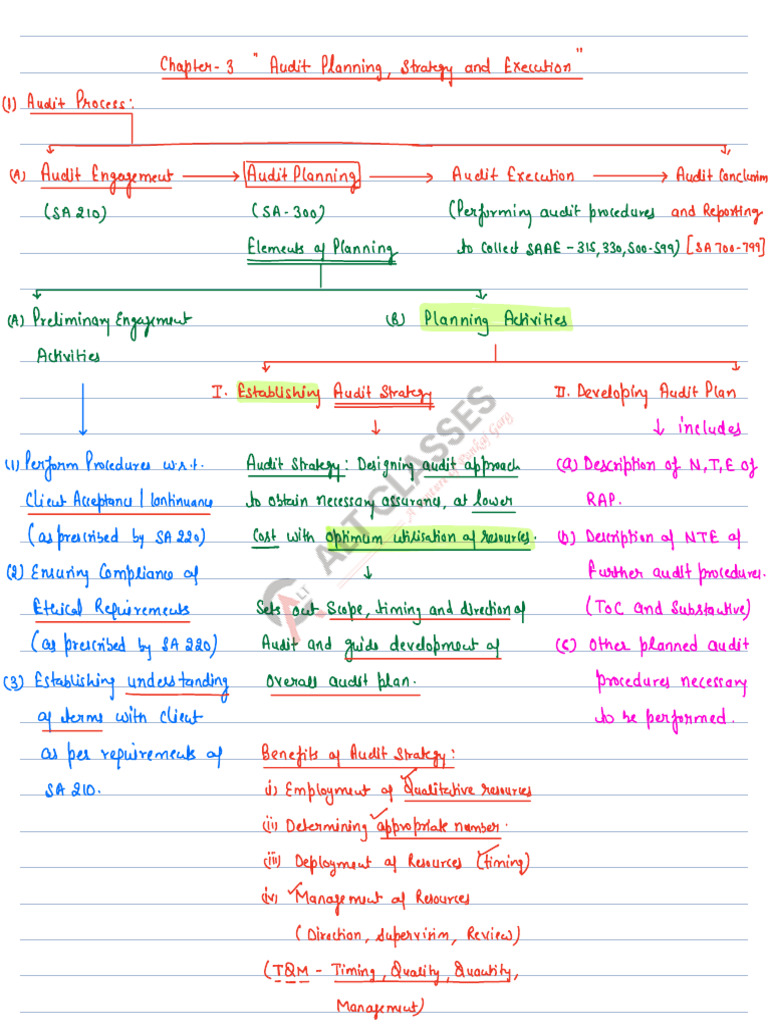 Chapter-3 "Audit Planning, Strategy and Execution"
(1) Audit Process:
(A) Audit Engagement → Audit Planning → Audit Execution → Audit Conclusion
(SA 210) (SA-300) (Performing audit procedures and Reporting
Elements of Planning to collect SAAE - 315, 330, 500-599) [SA 700-799]
(A) Preliminary Engagement (B) Planning Activities
Activities
I. Establishing Audit Strategy II. Developing Audit Plan
↓ includes
(1) Perform Procedures w.r.t.
Client Acceptance / Continuance
(as prescribed by SA 220)
(2) Ensuring Compliance of
Ethical Requirements
(as prescribed by SA 220)
(3) Establishing understanding
of terms with client
as per requirements of
SA 210.
Audit Strategy: Designing audit approach
to obtain necessary assurance, at lower
Cost with optimum utilisation of resources.
↓
Sets out Scope, timing and direction of
Audit and guide development of
Overall audit plan.
Benefits of Audit Strategy:
i) Employment of Qualitative resources
(ii) Determining appropriate number.
(iii) Deployment of Resources (timing)
(iv) Management of Resources
(Direction, Supervision, Review)
(TQM - Timing, Quality, Quantity,
Management)
(a) Description of N,T,E of
RAP.
(b) Description of NTE of
Further audit procedures.
(ToC and Substantive)
(c) Other planned audit
procedures necessary
to be performed.
ALT CLASSES
A venture by Pankaj Garg
ALT